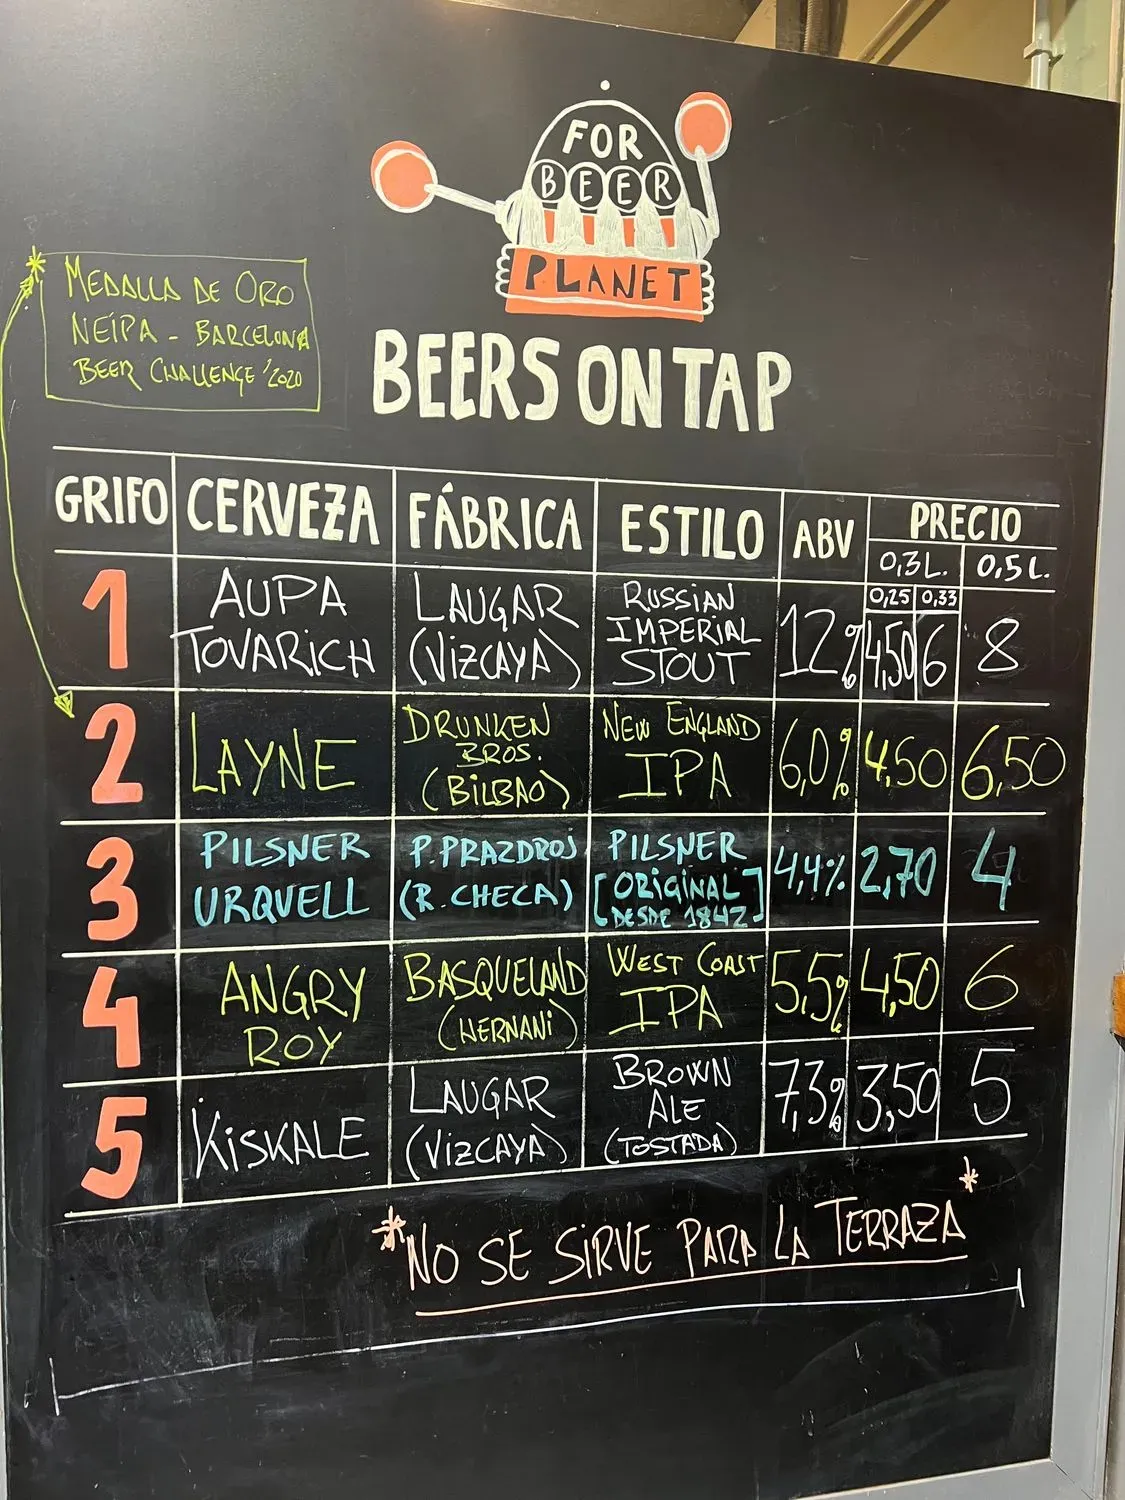 FOR
BEER
PLANET
BEERS ON TAP
* MEDALLA DE ORO
NEIPA - BARCELONA
BEER CHALLENGE '2020
GRIFO CERVEZA FÁBRICA ESTILO ABV PRECIO
0,3 L. 0,5 L.
0,25 0,33
1 AUPA TOVARICH LAUGAR (VIZCAYA) RUSSIAN IMPERIAL STOUT 12% 4,50 6 8
2 LAYNE DRUNKEN BROS. (BILBAO) NEW ENGLAND IPA 6,0% 4,50 6,50
3 PILSNER URQUELL P. PRAZDROJ (R. CHECA) PILSNER [ORIGINAL DESDE 1842] 4,4% 2,70 4
4 ANGRY ROY BASQUELAND (HERNANI) WEST COAST IPA 5,5% 4,50 6
5 KISKALE LAUGAR (VIZCAYA) BROWN ALE (TOSTADA) 7,3% 3,50 5
*NO SE SIRVE PARA LA TERRAZA*